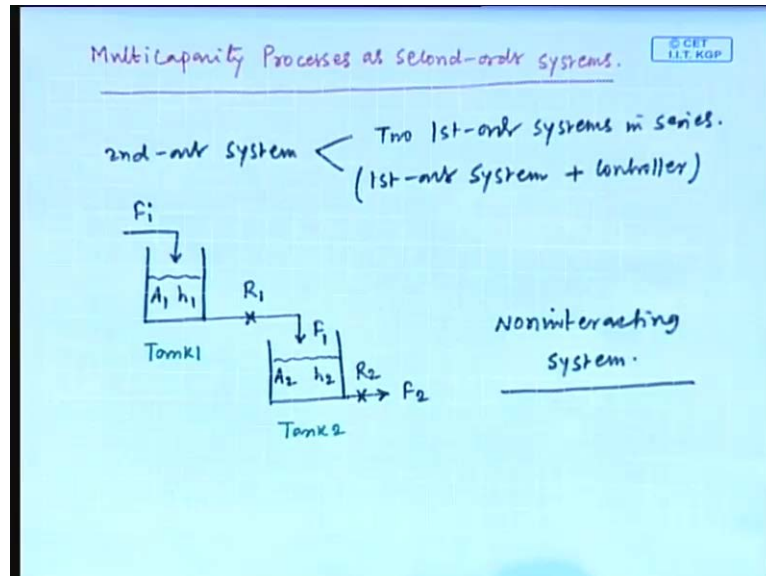 Multicapacity Processes as second-order systems.
© CET
I.I.T. KGP
2nd-order system < Two 1st-order systems in series.
(1st-order system + controller)
Fi
A1 h1
R1
F1
Tank1
A2 h2
R2
F2
Tank2
Noninteracting
system.